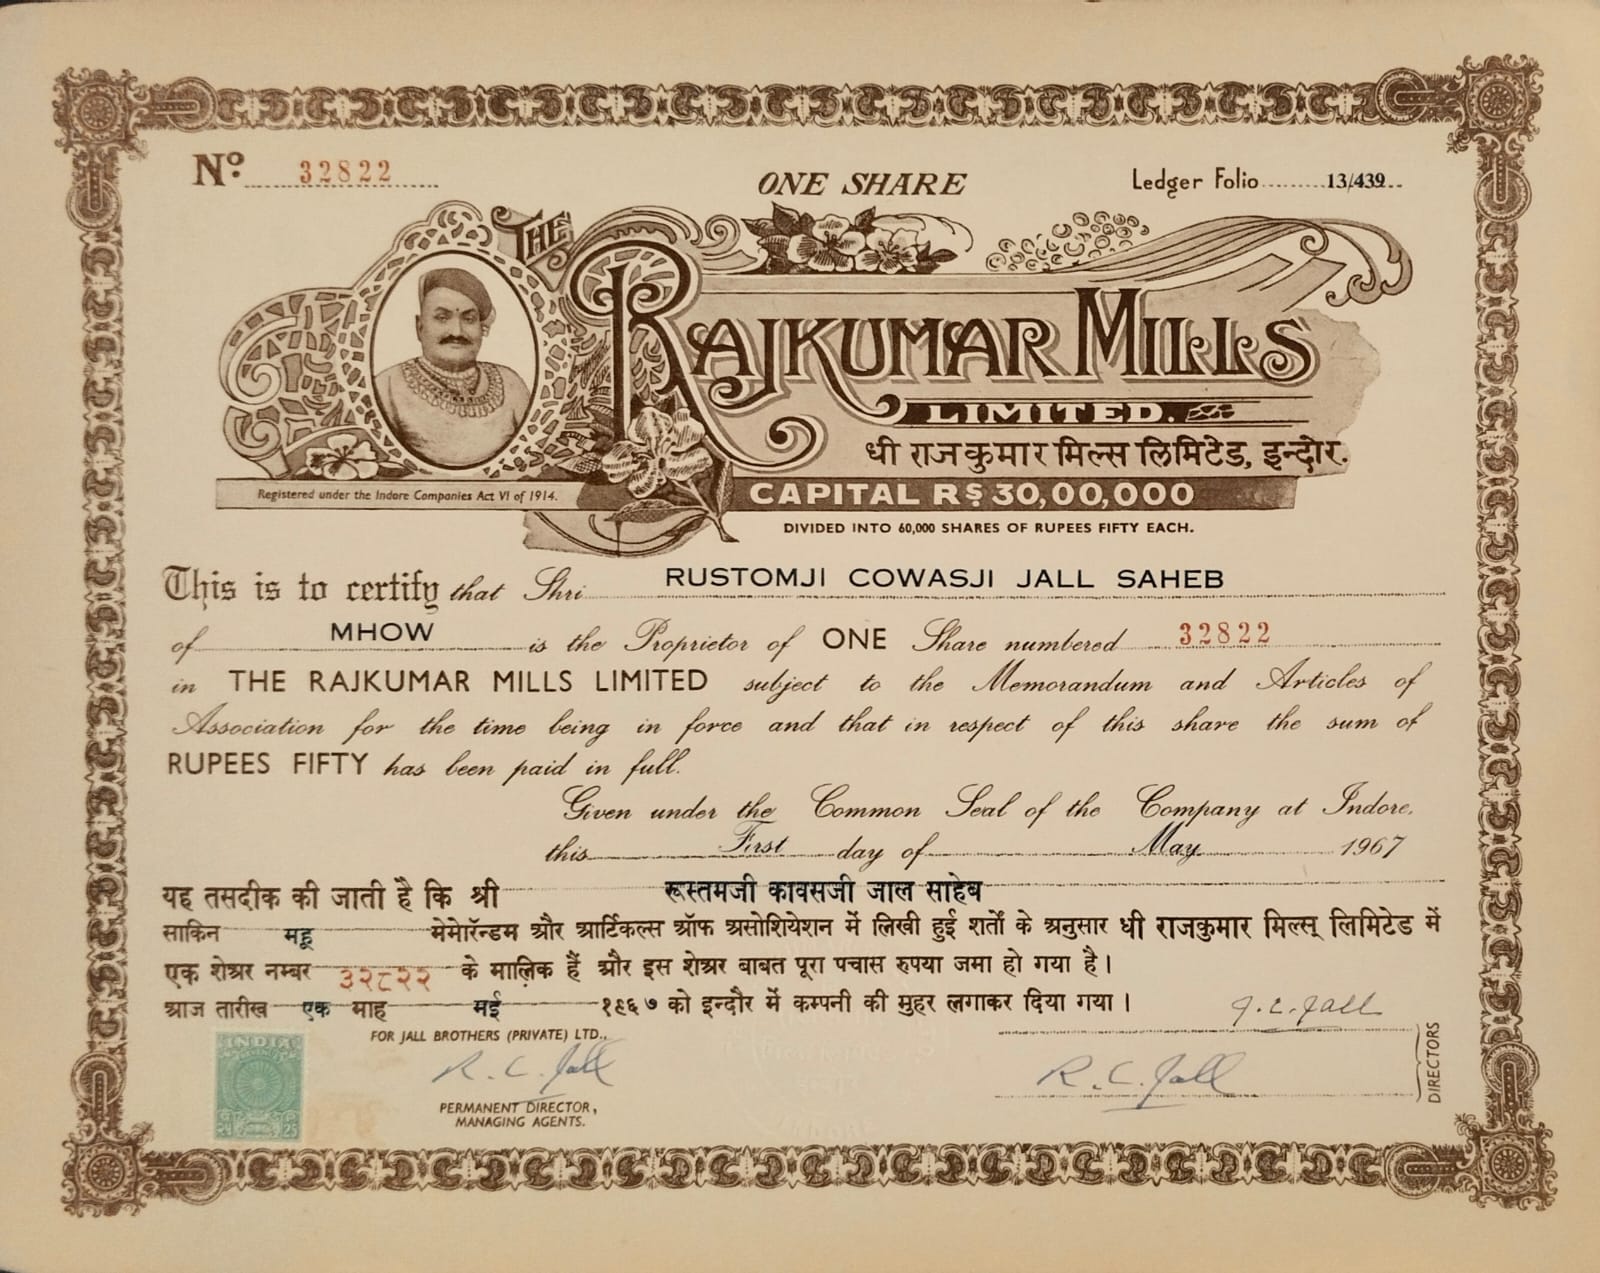 Nº. 32822
ONE SHARE
Ledger Folio 13/439
THE
RAJKUMAR MILLS
LIMITED.
धी राजकुमार मिल्स लिमिटेड, इन्दौर.
Registered under the Indore Companies Act VI of 1914.
CAPITAL RS 30,00,000
DIVIDED INTO 60,000 SHARES OF RUPEES FIFTY EACH.
This is to certify that Shri RUSTOMJI COWASJI JALL SAHEB
of MHOW is the Proprietor of ONE Share numbered 32822
in THE RAJKUMAR MILLS LIMITED subject to the Memorandum and Articles of
Association for the time being in force and that in respect of this share the sum of
RUPEES FIFTY has been paid in full.
Given under the Common Seal of the Company at Indore,
this First day of May 1967
यह तसदीक की जाती है कि श्री रूस्तमजी कावसजी जाल साहेब
साकिन महू मेमोरॅन्डम और आर्टिकल्स ऑफ असोशियेशन में लिखी हुई शर्तों के अनुसार धी राजकुमार मिल्स् लिमिटेड में
एक शेअर नम्बर ३२८२२ के मालिक हैं और इस शेअर बाबत पूरा पचास रुपया जमा हो गया है।
आज तारीख एक माह मई १९६७ को इन्दौर में कम्पनी की मुहर लगाकर दिया गया।
J. C. Jall
FOR JALL BROTHERS (PRIVATE) LTD.,
R. C. Jall
R. C. Jall
DIRECTORS
PERMANENT DIRECTOR,
MANAGING AGENTS.
INDIA
REVENUE
25